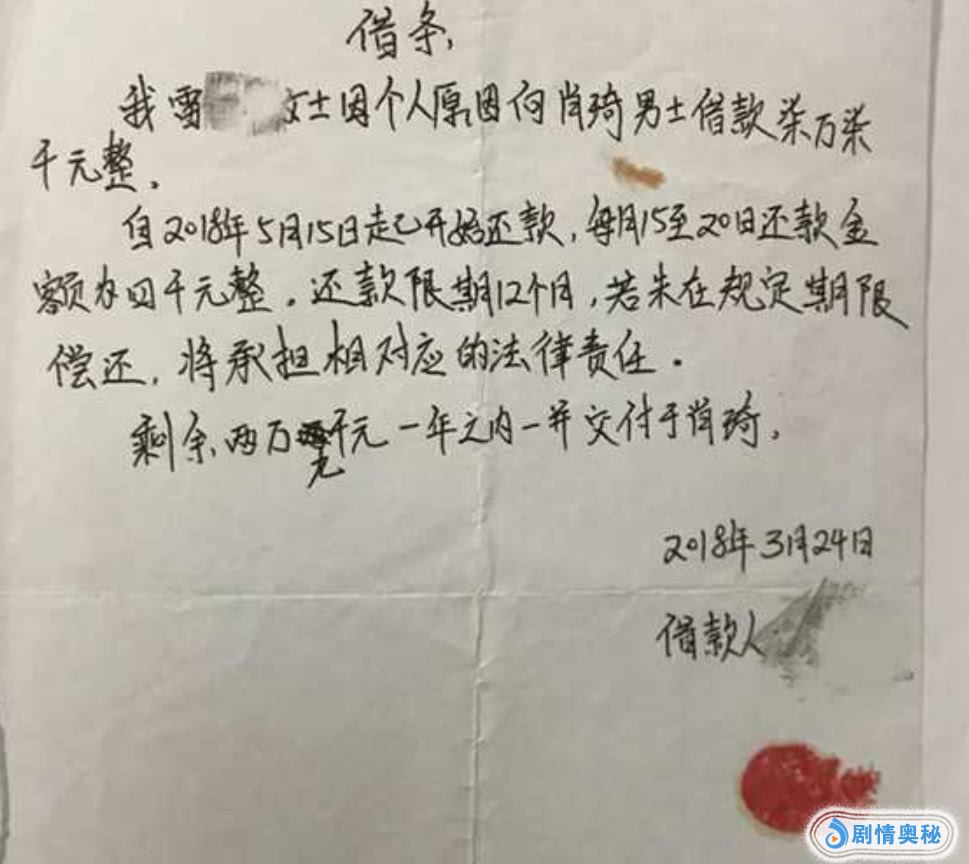 借条,
我雷 女士因个人原因向肖琦男士借款柒万柒
千元整.
自2018年5月15日起开始还款,每月15至20日还款金
额为四千元整.还款限期12个月,若未在规定期限
偿还,将承担相对应的法律责任.
剩余两万 千元一年之内一并交付于肖琦.
元
2018年3月24日
借款人
剧情奥秘